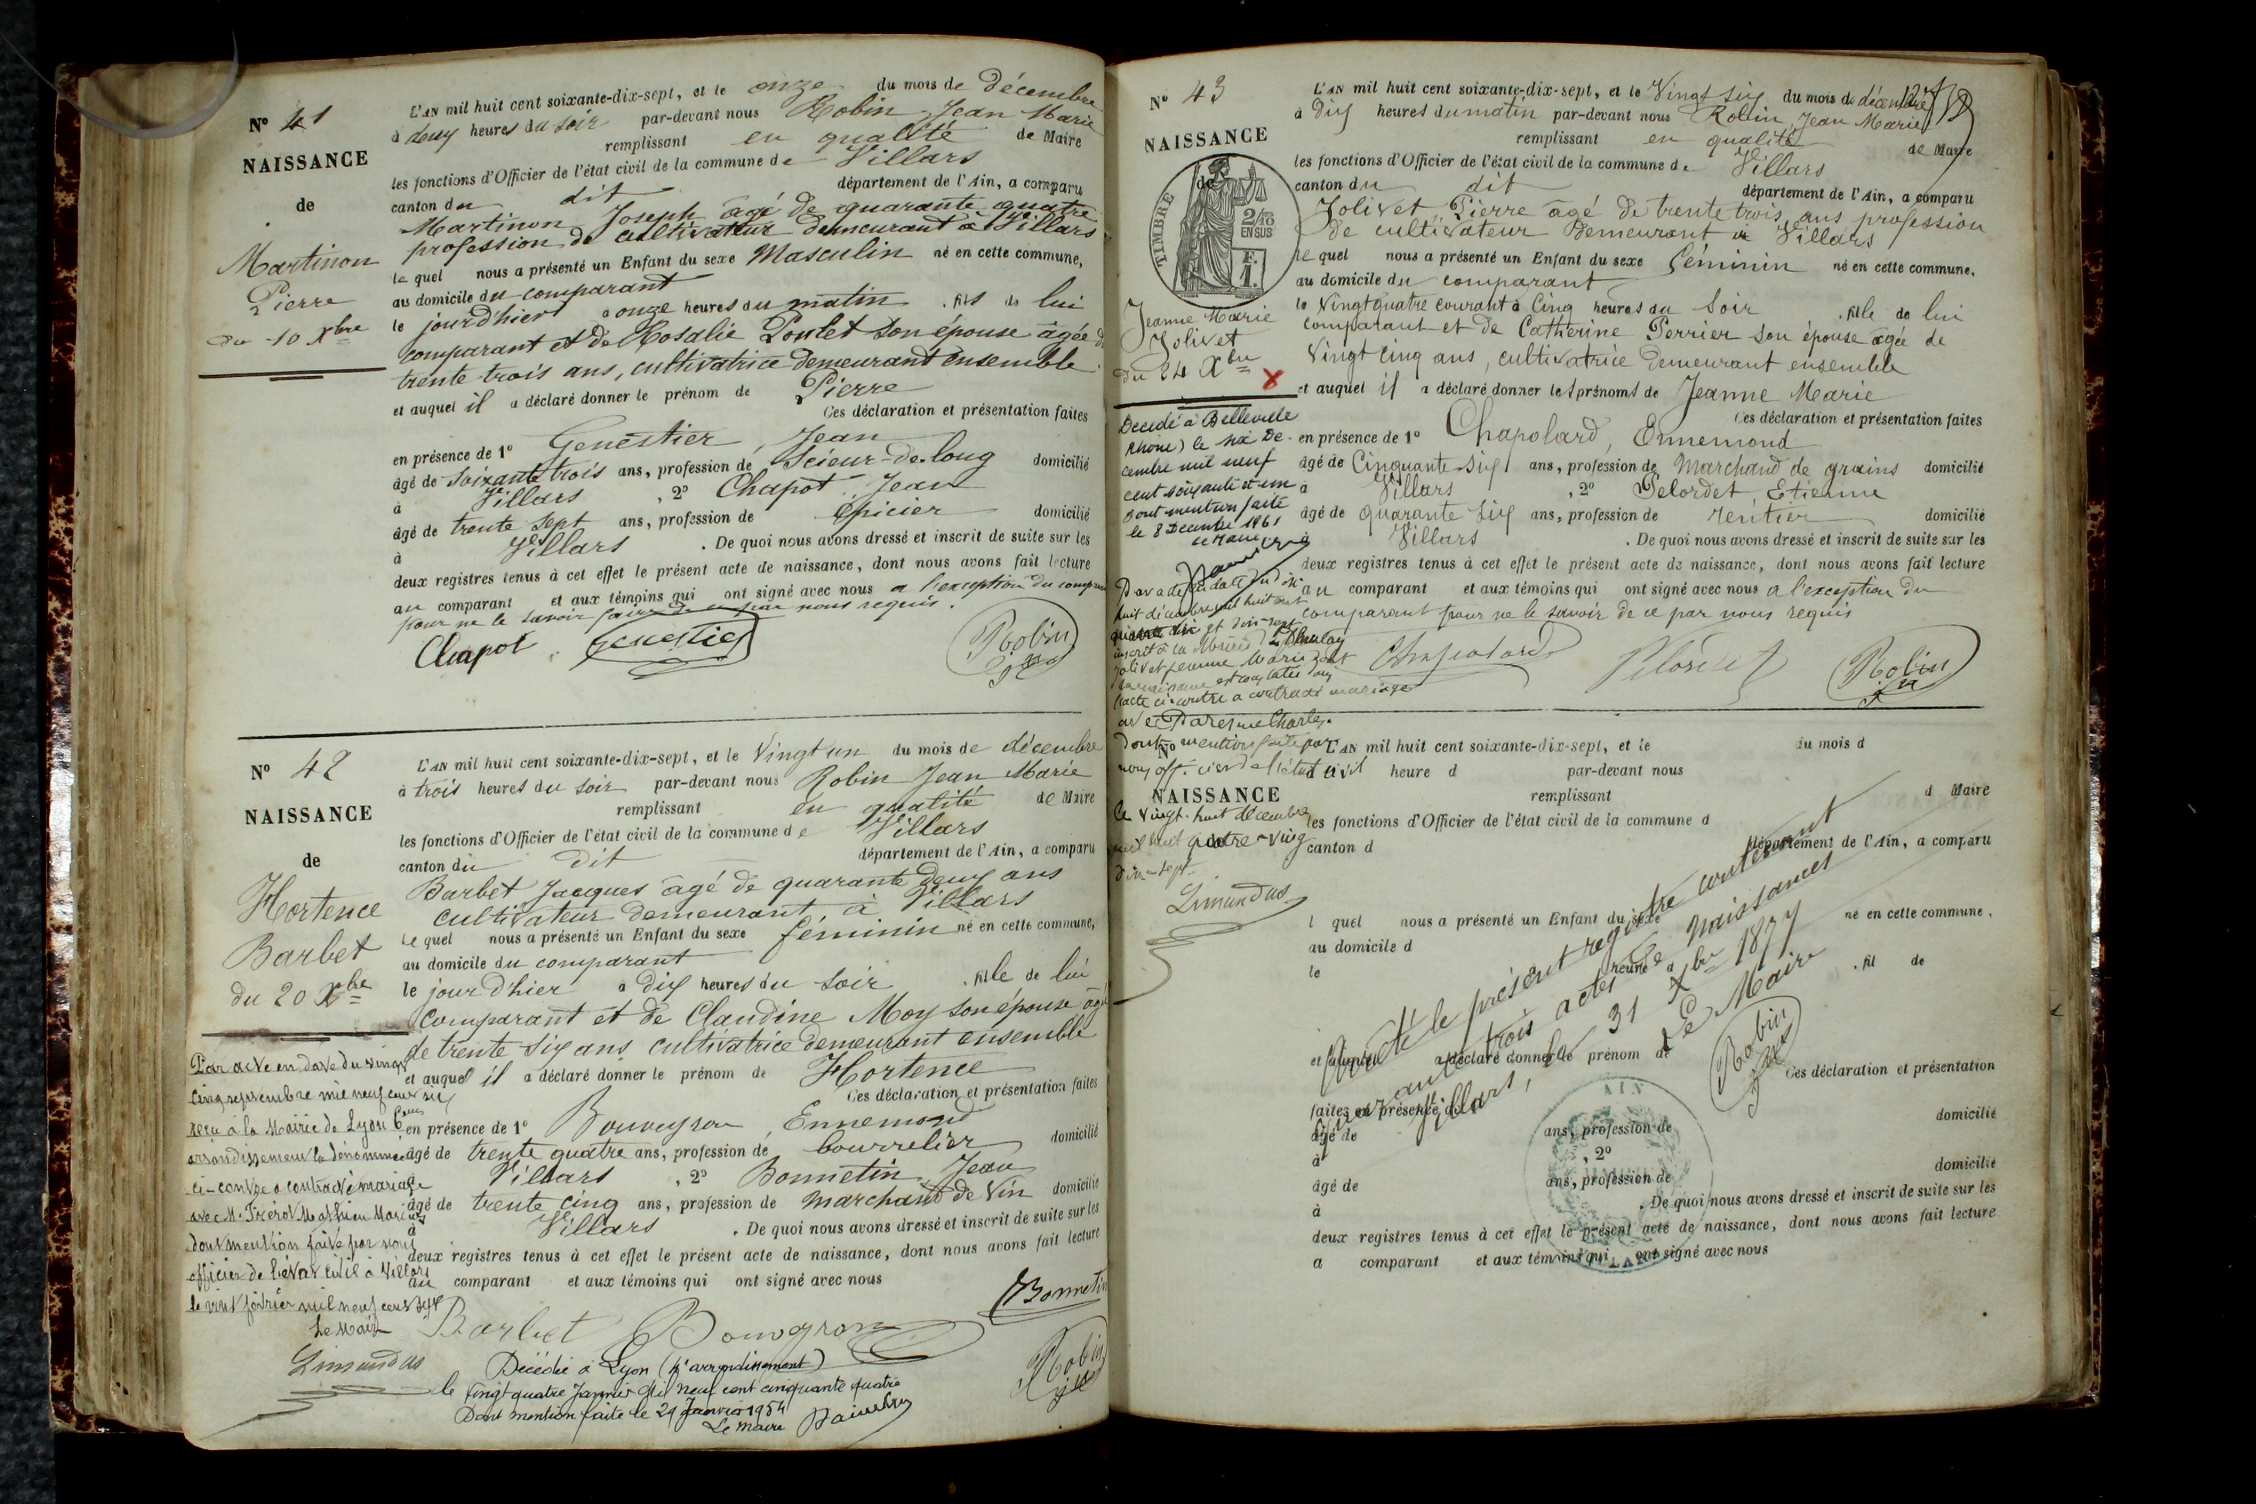 N° 41
NAISSANCE
de
Martinon
Pierre
du 10 Xbre
L'AN mil huit cent soixante-dix-sept, et le onze du mois de décembre
à deux heures du soir par-devant nous Robin Jean Marie
remplissant en qualité de Maire
les fonctions d'Officier de l'état civil de la commune de Villars
canton du dit département de l'Ain, a comparu
Martinon Joseph âgé de quarante quatre
profession de cultivateur demeurant à Villars
le quel nous a présenté un Enfant du sexe Masculin né en cette commune,
au domicile du comparant
le jour d'hier à onze heures du matin , fils de lui
comparant et de Rosalie Poulet son épouse âgée de
trente trois ans, cultivatrice demeurant ensemble
et auquel il a déclaré donner le prénom de Pierre
Ces déclaration et présentation faites
en présence de 1° Genestier, Jean
âgé de soixante trois ans, profession de Scieur-de-long domicilié
à Villars , 2° Chapot, Jean
âgé de trente sept ans, profession de épicier domicilié
à Villars . De quoi nous avons dressé et inscrit de suite sur les
deux registres tenus à cet effet le présent acte de naissance, dont nous avons fait lecture
au comparant et aux témoins qui ont signé avec nous a l'exception du comparant
pour ne le savoir faire de ce par nous requis.
Chapot Genestier Robin
N° 42
NAISSANCE
de
Hortence
Barbet
du 20 Xbre
L'AN mil huit cent soixante-dix-sept, et le Vingt un du mois de décembre
à trois heures du soir par-devant nous Robin Jean Marie
remplissant en qualité de Maire
les fonctions d'Officier de l'état civil de la commune de Villars
canton du dit département de l'Ain, a comparu
Barbet Jacques âgé de quarante deux ans
cultivateur demeurant à Villars
le quel nous a présenté un Enfant du sexe féminin né en cette commune,
au domicile du comparant
le jour d'hier à dix heures du soir , fille de lui
comparant et de Claudine Moy son épouse âgée
de trente six ans cultivatrice demeurant ensemble
et auquel il a déclaré donner le prénom de Hortence
Ces déclaration et présentation faites
en présence de 1° Bouveyron, Ennemond
âgé de trente quatre ans, profession de bourrelier domicilié
à Villars , 2° Bonnetin Jean
âgé de trente cinq ans, profession de marchand de vin domicilié
à Villars . De quoi nous avons dressé et inscrit de suite sur les
deux registres tenus à cet effet le présent acte de naissance, dont nous avons fait lecture
au comparant et aux témoins qui ont signé avec nous
Bonnetin
Barbet Bouveyron
Robin
Par acte en date du vingt
cinq septembre mil neuf cent six
reçu à la Mairie de Lyon 6eme
arrondissement la dénommée
ci-contre a contracté mariage
avec M. Trérot Mathieu Marius
dont mention faite par nous
officier de l'état civil à Villars
le vint février mil neuf cent sept
Le Maire
Limandas
Décédée à Lyon (4e arrondissement)
le vingt quatre Janvier mil neuf cent cinquante quatre
Dont mention faite le 29 Janvier 1954
Le Maire
N° 43
NAISSANCE
de
TIMBRE
2/10
EN SUS
F.
1.
Jeanne Marie
Jolivet
du 24 Xbre
L'AN mil huit cent soixante-dix-sept, et le Vingt six du mois de décembre
à Dix heures du matin par-devant nous Robin, Jean Marie
remplissant en qualité de Maire
les fonctions d'Officier de l'état civil de la commune de Villars
canton du dit département de l'Ain, a comparu
Jolivet Pierre âgé de trente trois ans profession
de cultivateur demeurant à Villars
le quel nous a présenté un Enfant du sexe féminin né en cette commune,
au domicile du comparant
le Vingt quatre courant à Cinq heures du Soir , fille de lui
comparant et de Catherine Perrier son épouse âgée de
Vingt cinq ans, cultivatrice demeurant ensemble
et auquel il a déclaré donner les prénoms de Jeanne Marie
Ces déclaration et présentation faites
en présence de 1° Chapolard, Ennemond
âgé de Cinquante six ans, profession de Marchand de grains domicilié
à Villars , 2° Pelordet, Etienne
âgé de quarante six ans, profession de rentier domicilié
à Villars . De quoi nous avons dressé et inscrit de suite sur les
deux registres tenus à cet effet le présent acte de naissance, dont nous avons fait lecture
au comparant et aux témoins qui ont signé avec nous a l'exception du
comparant pour ne le savoir de ce par nous requis
Chapolard Pelordet Robin
Décédé à Belleville
Rhône) le six De-
cembre mil neuf
cent soixante et un
dont mention faite
le 8 Décembre 1961
Le Maire
Par acte en date du dix
huit décembre mil huit cent
quatre vingt dix-sept
inscrit à la Mairie de
Jolivet Jeanne Marie dont
la naissance est constatée par
l'acte ci-contre a contracté mariage
avec Daresme Charles.
dont mention faite par
nous officier de l'état civil
le vingt-huit décembre
mil huit quatre-vingt
dix-sept.
Limandas
N°
NAISSANCE
L'AN mil huit cent soixante-dix-sept, et le du mois d
heure d par-devant nous
remplissant d Maire
les fonctions d'Officier de l'état civil de la commune d
canton d département de l'Ain, a comparu
l quel nous a présenté un Enfant du sexe né en cette commune,
au domicile d
le à heure d , fil de
et auquel a déclaré donner le prénom de
Ces déclaration et présentation
faites en présence de 1° domicilié
âgé de ans, profession de
à , 2° domicilié
âgé de ans, profession de
à . De quoi nous avons dressé et inscrit de suite sur les
deux registres tenus à cet effet le présent acte de naissance, dont nous avons fait lecture
a comparant et aux témoins qui ont signé avec nous
Arrêté le présent registre contenant
quarante trois actes de naissances
Villars, le 31 Xbre 1877
Le Maire
Robin
AIN
VILLARS